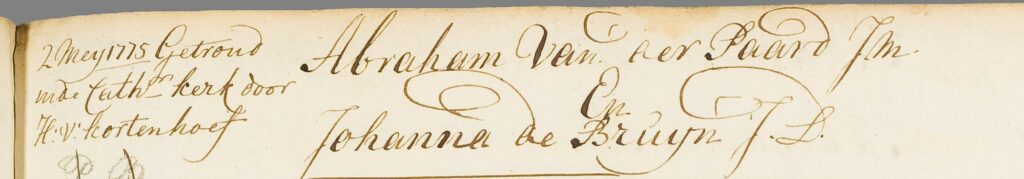 2 Mey 1775 Getroud
in de Cathr kerk door
H: V: kortenhoef
Abraham Van der Paard J:m
En
Johanna de Bruyn J. D.